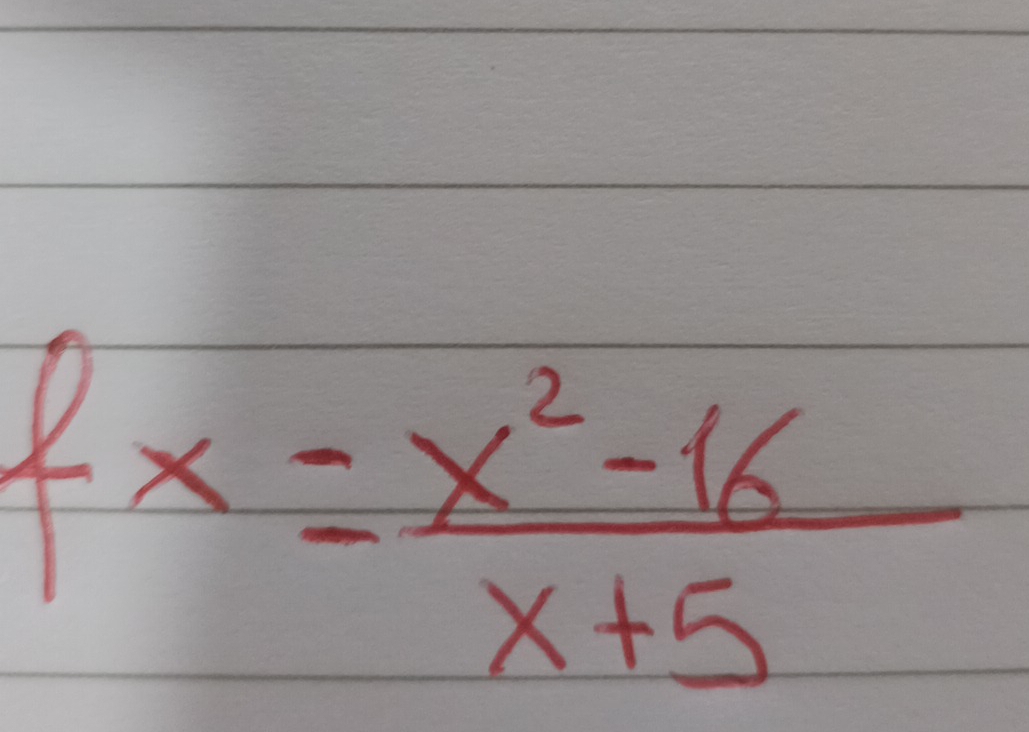 f x = x² - 16
x + 5